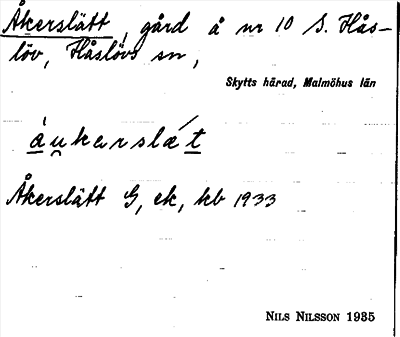 Åkerslätt, gård å nr 10 S. Hås-
löv, Håslövs sn,
Skytts härad, Malmöhus län
áu̯kərslæ´t
Åkerslätt G, ek, kb 1933
NILS NILSSON 1935